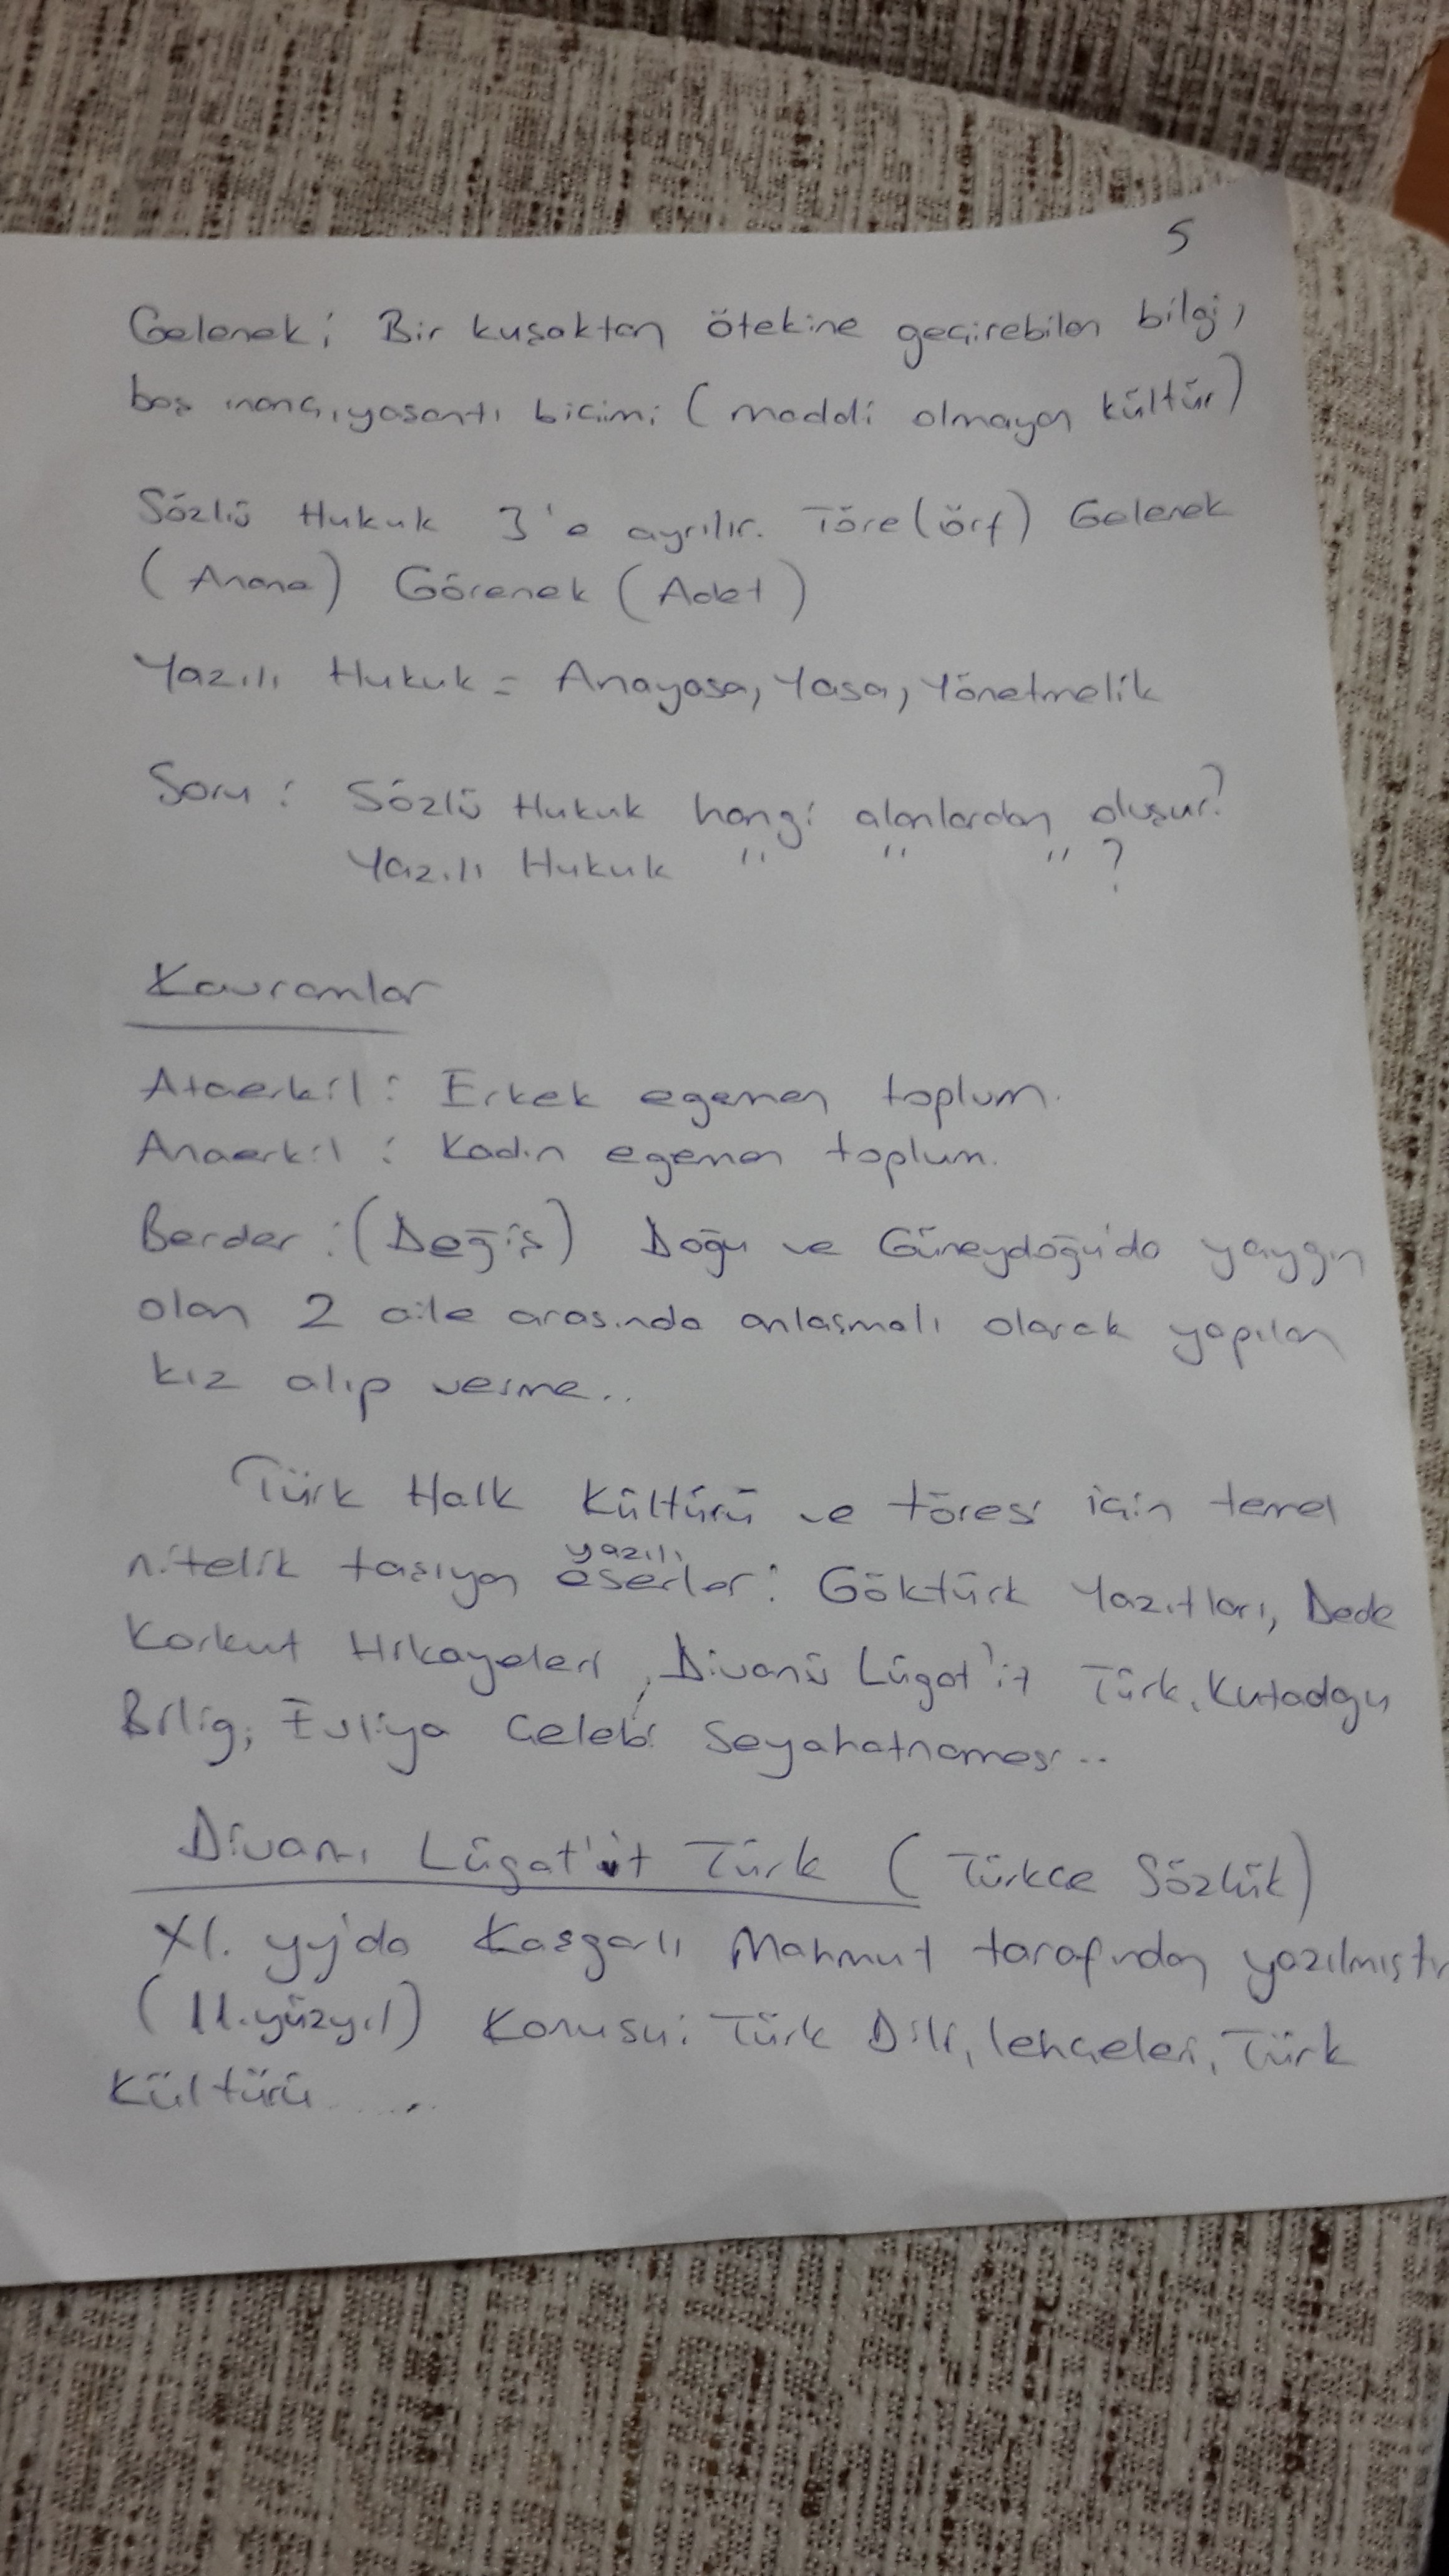 5
Gelenek: Bir kuşaktan ötekine geçirebilen bilgi,
boş inanç, yaşantı biçimi (maddi olmayan kültür)
Sözlü Hukuk 3'e ayrılır. Töre (örf) Gelenek
(Anane) Görenek (Adet)
Yazılı Hukuk = Anayasa, Yasa, Yönetmelik
Soru: Sözlü Hukuk hangi alanlardan oluşur?
Yazılı Hukuk " " " ?
Kavramlar
Ataerkil: Erkek egemen toplum.
Anaerkil: Kadın egemen toplum.
Berder: (Değiş) Doğu ve Güneydoğu'da yaygın
olan 2 aile arasında anlaşmalı olarak yapılan
kız alıp verme..
Türk Halk Kültürü ve töresi için temel
nitelik taşıyan yazılı eserler: Göktürk Yazıtları, Dede
Korkut Hikayeleri, Divanü Lügat'it Türk, Kutadgu
Bilig, Evliya Çelebi Seyahatnamesi..
Divanı Lügat'it Türk (Türkçe Sözlük)
XI. yy'da Kaşgarlı Mahmut tarafından yazılmıştır
(11.yüzyıl) Konusu: Türk Dili, lehçeleri, Türk
Kültürü......